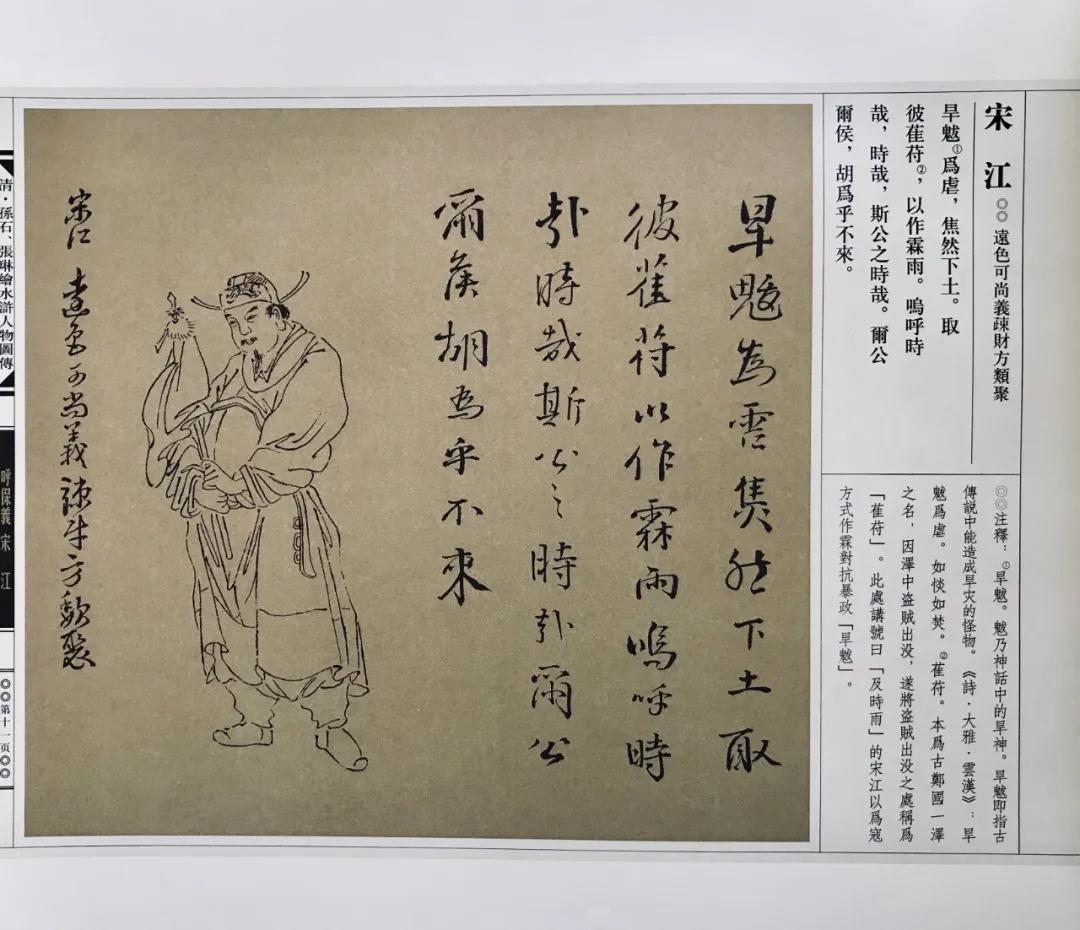 宋江 ◎◎ 遠色可尚義疎財方類聚
旱魃①爲虐，焦然下土。取
彼萑苻②，以作霖雨。嗚呼時
哉，時哉，斯公之時哉。爾公
爾侯，胡爲乎不來。
◎◎注釋：①旱魃。魃乃神話中的旱神。旱魃即指古
傳說中能造成旱灾的怪物。《詩·大雅·雲漢》：旱
魃爲虐。如惔如焚。②萑苻。本爲古鄭國一澤
之名，因澤中盗賊出没，遂將盗賊出没之處稱爲
「萑苻」。此處講號曰「及時雨」的宋江以爲寇
方式作霖對抗暴政「旱魃」。
旱魃為虐焦然下土取
彼萑苻以作霖雨嗚呼時
哉時哉斯公之時哉爾公
爾侯胡為乎不來
宋江 遠色可尚義疎財方類聚
清·孫石、張琳繪水滸人物圖傳
呼保義 宋江
◎◎第十一页◎◎